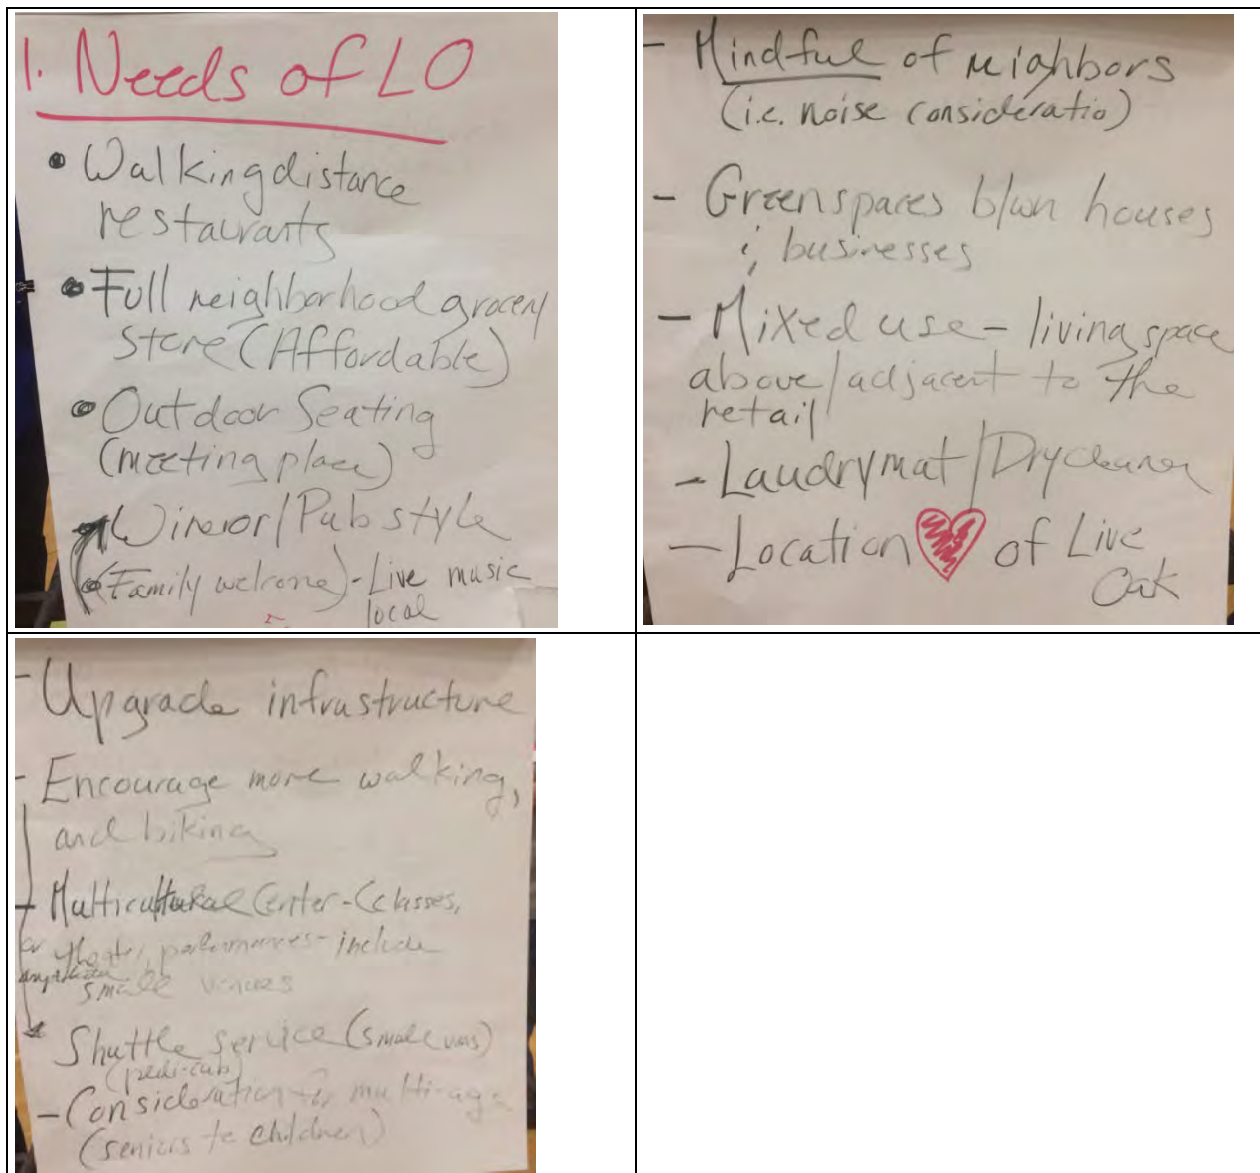 1. Needs of LO
• Walking distance
restaurants
• Full neighborhood grocery
Store (Affordable)
• Outdoor Seating
(meeting place)
Wine or/Pub style
(Family welcome) - Live music
local
- Mindful of neighbors
(i.e. noise consideratio)
- Greenspaces b/wn houses
& businesses
- Mixed use - living space
above/adjacent to the
retail
- Laundrymat/Drycleaner
- Location ♥ of Live
Oak
- Upgrade infrastructure
- Encourage more walking,
and biking
- Multicultural Center - (classes,
or performances - include
small venues
Shuttle service (small vans)
(pedi-cab)
- Consideration for multi-age
(seniors to children)